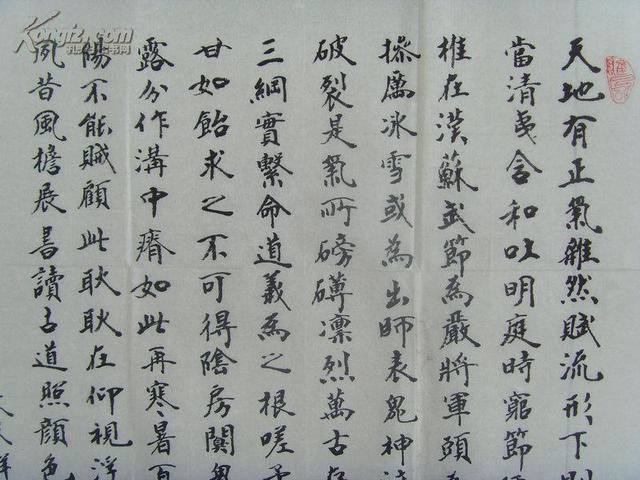 天地有正氣雜然賦流形下則
當清夷含和吐明庭時窮節
椎在漢蘇武節為嚴將軍頭為
操厲冰雪或為出師表鬼神泣
破裂是氣所磅礴凜烈萬古存
三綱實繫命道義為之根嗟予
甘如飴求之不可得陰房闃鬼
露分作溝中瘠如此再寒暑百
陽不能賊顧此耿耿在仰視浮
夙昔風擔展書讀古道照顏色